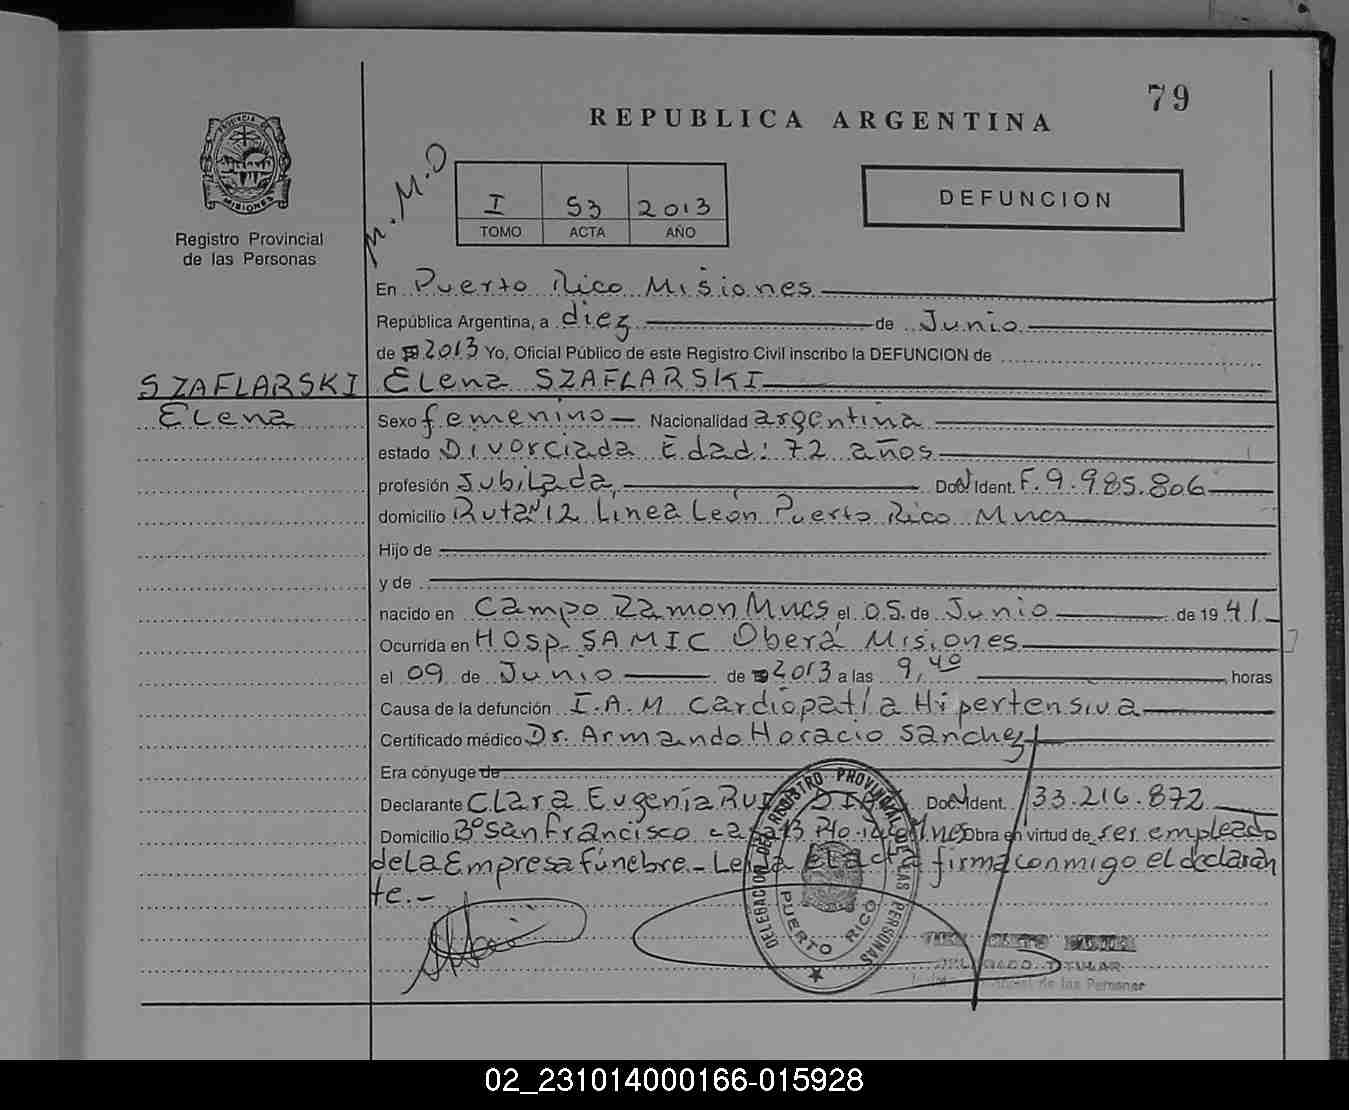 79
REPUBLICA ARGENTINA
PROVINCIA DE
MISIONES
Registro Provincial
de las Personas
M.O
I 53 2013
TOMO ACTA AÑO
DEFUNCION
En Puerto Rico Misiones
República Argentina, a diez de Junio
de 2013 Yo, Oficial Público de este Registro Civil inscribo la DEFUNCION de
SZAFLARSKI Elena SZAFLARSKI
Elena Sexo femenino Nacionalidad argentina
estado Divorciada Edad: 72 años
profesión Jubilada Doc N Ident. F. 9.985.806
domicilio Ruta N 12 Linea León Puerto Rico Mnes
Hijo de
y de
nacido en Campo Ramon Mnes el 05 de Junio de 1941
Ocurrida en Hosp. SAMIC Oberá Misiones
el 09 de Junio de 2013 a las 9,40 horas
Causa de la defunción I.A.M Cardiopatía Hipertensiva
Certificado médico Dr. Armando Horacio Sanchez
Era cónyuge de
Declarante Clara Eugenia Doc N Ident. 33.216.872
Domicilio Bº San Francisco Obra en virtud de ser empleado
de la Empresa fúnebre.- firma conmigo el declaran
te.-
DELEGACION DEL REGISTRO PROVINCIAL DE LAS PERSONAS
PUERTO RICO
TITULAR
de las Personas
02_231014000166-015928